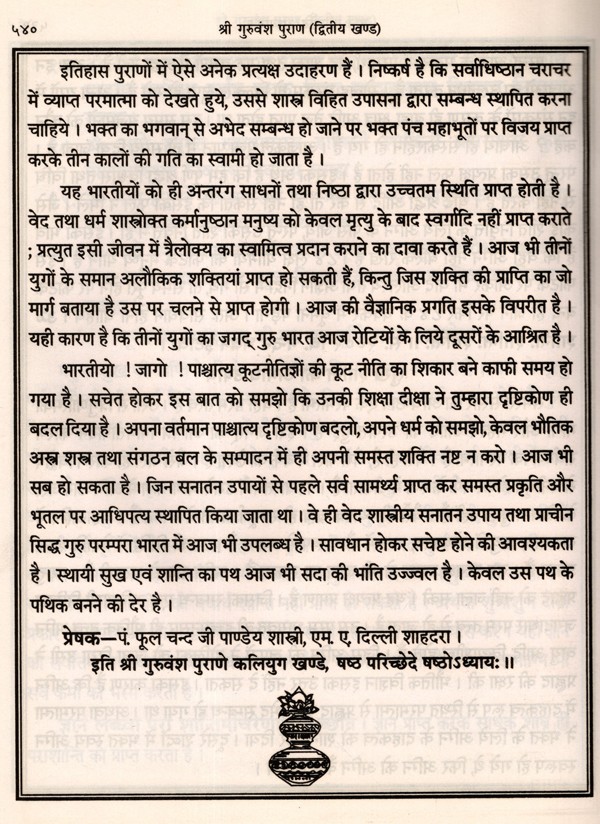 ५४०
श्री गुरुवंश पुराण (द्वितीय खण्ड)
इतिहास पुराणों में ऐसे अनेक प्रत्यक्ष उदाहरण हैं । निष्कर्ष है कि सर्वाधिष्ठान चराचर
में व्याप्त परमात्मा को देखते हुये, उससे शास्त्र विहित उपासना द्वारा सम्बन्ध स्थापित करना
चाहिये । भक्त का भगवान् से अभेद सम्बन्ध हो जाने पर भक्त पंच महाभूतों पर विजय प्राप्त
करके तीन कालों की गति का स्वामी हो जाता है ।
यह भारतीयों को ही अन्तरंग साधनों तथा निष्ठा द्वारा उच्चतम स्थिति प्राप्त होती है ।
वेद तथा धर्म शास्त्रोक्त कर्मानुष्ठान मनुष्य को केवल मृत्यु के बाद स्वर्गादि नहीं प्राप्त कराते
; प्रत्युत इसी जीवन में त्रैलोक्य का स्वामित्व प्रदान कराने का दावा करते हैं । आज भी तीनों
युगों के समान अलौकिक शक्तियां प्राप्त हो सकती हैं, किन्तु जिस शक्ति की प्राप्ति का जो
मार्ग बताया है उस पर चलने से प्राप्त होगी । आज की वैज्ञानिक प्रगति इसके विपरीत है ।
यही कारण है कि तीनों युगों का जगद् गुरु भारत आज रोटियों के लिये दूसरों के आश्रित है ।
भारतीयो ! जागो ! पाश्चात्य कूटनीतिज्ञों की कूट नीति का शिकार बने काफी समय हो
गया है । सचेत होकर इस बात को समझो कि उनकी शिक्षा दीक्षा ने तुम्हारा दृष्टिकोण ही
बदल दिया है । अपना वर्तमान पाश्चात्य दृष्टिकोण बदलो, अपने धर्म को समझो, केवल भौतिक
अस्त्र शस्त्र तथा संगठन बल के सम्पादन में ही अपनी समस्त शक्ति नष्ट न करो । आज भी
सब हो सकता है । जिन सनातन उपायों से पहले सर्व सामर्थ्य प्राप्त कर समस्त प्रकृति और
भूतल पर आधिपत्य स्थापित किया जाता था । वे ही वेद शास्त्रीय सनातन उपाय तथा प्राचीन
सिद्ध गुरु परम्परा भारत में आज भी उपलब्ध है । सावधान होकर सचेष्ट होने की आवश्यकता
है । स्थायी सुख एवं शान्ति का पथ आज भी सदा की भांति उज्ज्वल है । केवल उस पथ के
पथिक बनने की देर है ।
प्रेषक—पं. फूल चन्द जी पाण्डेय शास्त्री, एम. ए, दिल्ली शाहदरा ।
इति श्री गुरुवंश पुराणे कलियुग खण्डे, षष्ठ परिच्छेदे षष्ठोऽध्यायः ॥